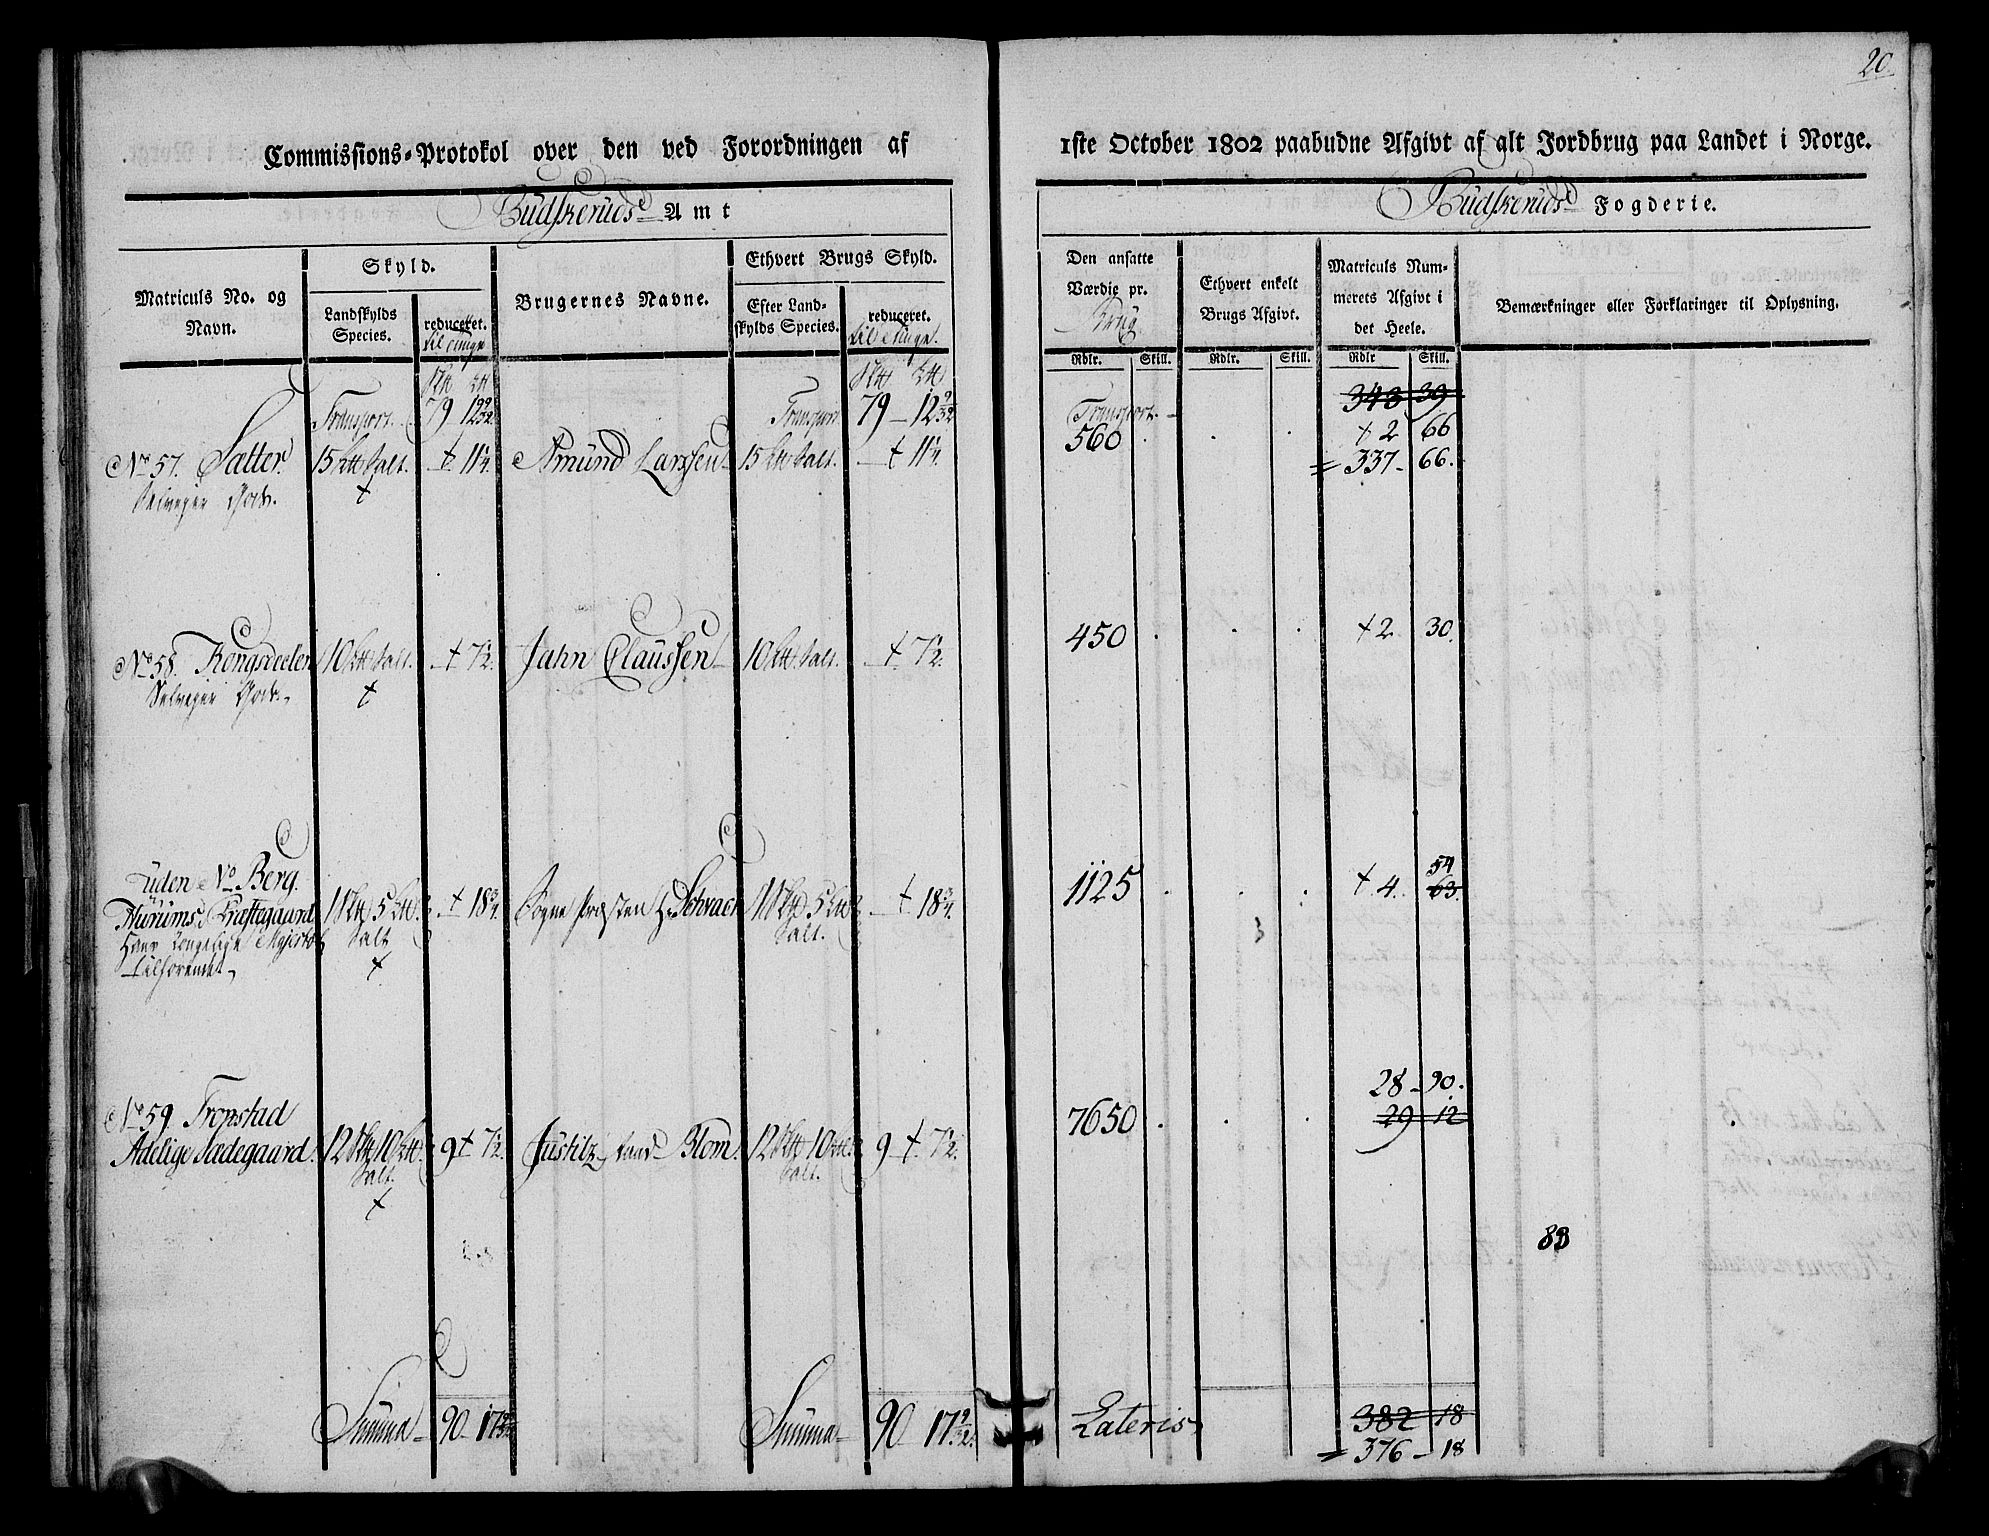 20.
Commissions-Protokol over den ved Forordningen af
1ste October 1802 paabudne Afgivt af alt Jordbrug paa Landet i Norge.
Budskeruds Amt
Budskeruds Fogderie.
Matriculs No. og
Navn.
Skyld.
Landskylds
Species.
reduceret.
til Tunge
Brugernes Navne.
Ethvert Brugs Skyld.
Efter Land-
skylds Species.
reduceret.
til Tunge.
Den ansatte
Værdie pr.
Brug
Rdlr. Skill.
Ethvert enkelt
Brugs Afgivt.
Rdlr. Skill.
Matriculs Num-
merets Afgivt i
det Heele.
Rdlr Skill.
Bemærkninger eller Forklaringer til Oplysning.
Transport. 79 12 9/32 Transport 79 - 12 9/32 Transport. 343 39
+ 2 66
No 57. Sætter. 15 Salt. + 11 1/4. Amund Larssen 15 Salt. + 11 1/4. 560 = 337 - 66.
Selveyer Gods.
No 58. Kongsdeelen 10 Salt. + 7 1/2. Jahn Claussen 10 Salt. + 7 1/2. 450 + 2 30.
Selveyer Gods.
uden No Berg. 54
Hurums Præstegaard 1 5 + 18 3/4. Sogne Præsten Hr 1 5 + 18 3/4. 1125 + 4. 63.
Salt Salt.
28 - 90.
No 59. Tronstad 7650 29 12
Adelige Sædegaard. 12 10 9 + 7 1/2. Justitz Raad Blom. 12 10 9 + 7 1/2.
Salt. Salt.
83
Summa 90 17 9/32 Summa 90 17 9/32. Lateris 382 18
= 376 - 18